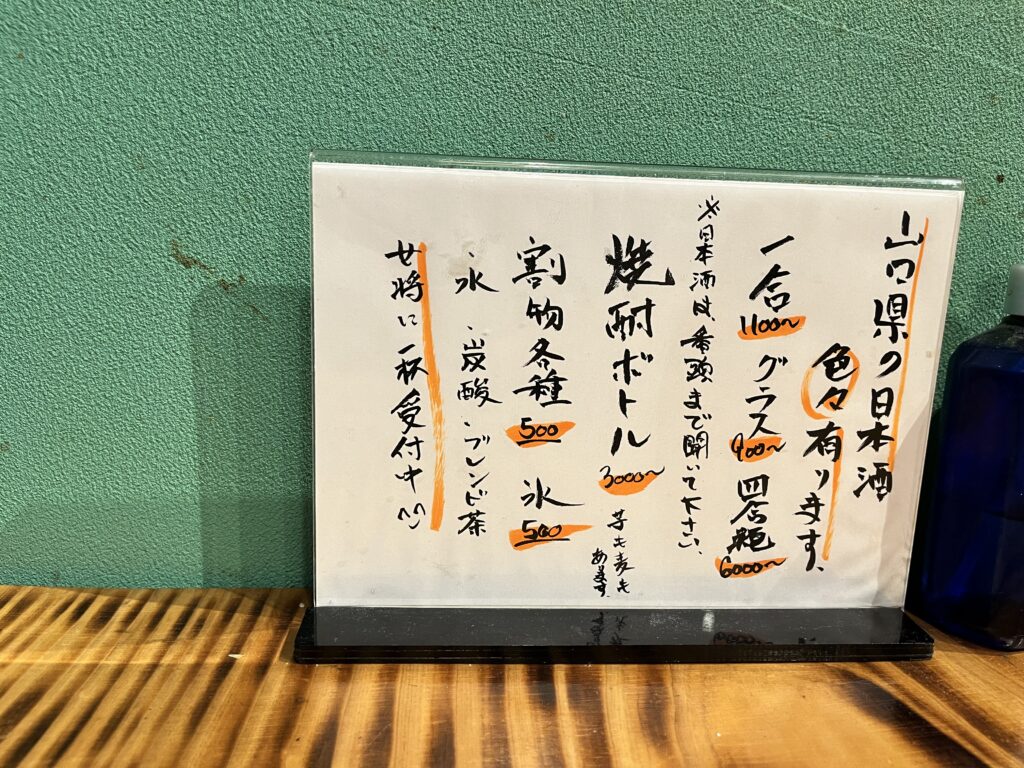 山口県の日本酒
色々有ります、
一合 1100〜 グラス 900〜 四合瓶 6000〜
※日本酒は、番頭まで聞いて下さい、
焼酎ボトル 3000〜
芋も麦も
あります。
割物各種 500 氷 500
・水 ・炭酸 ・ブレンド茶
女将に一杯受付中